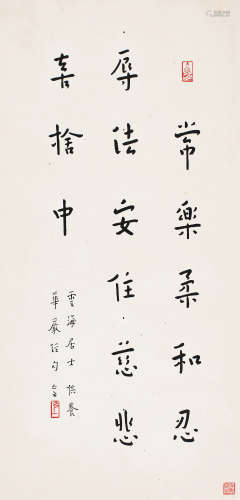 常樂柔和忍
辱法安住慈悲
喜捨中
雲海居士供養
華嚴經句